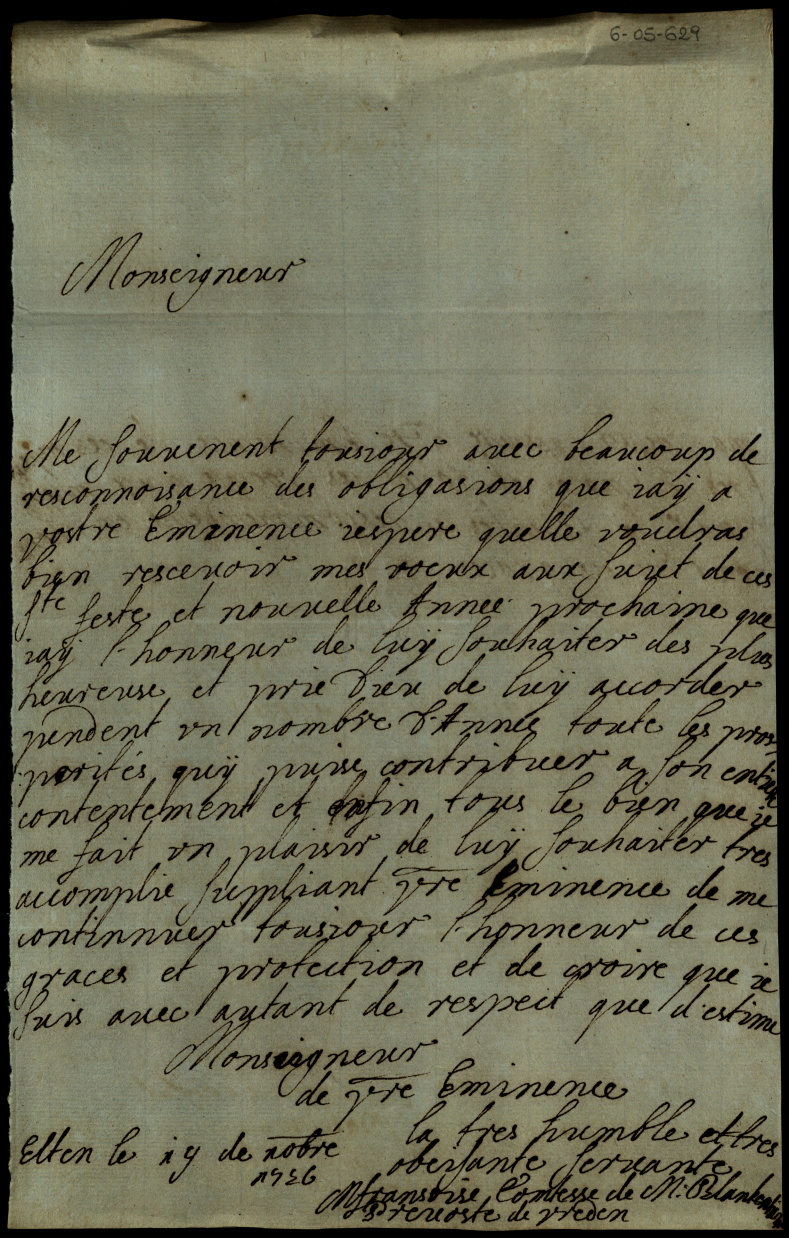 6-05-629
Monseigneur
Me souuenent tousiour auec beaucoup de
resconnoisance des obligasions que iaÿ a
vostre Eminence iespere quelle voudras
bien rescevoir mes voeux aux suiet de ces
Ste feste et nouuelle Annee prochaine que
iaÿ l'honneur de luÿ souhaiter des plus
heureuse et prie Dieu de luÿ accorder
pendent vn nombre d'Annes toute les pros
perités quÿ puise contribuer a son entier
contentement et enfin tous le bien que ie
me fait vn plaisir de luÿ souhaiter tres
accomplie suppliant vre Eminence de me
continnuer tousiour l'honneur de ces
graces et protection et de croire que ie
suis auec autant de respect que d'estime
Monseigneur
de vre Eminence
la tres humble et tres
Elten le 19 de nobre obeisante seruante
1726
Mfransoise Comtesse de M:
Preuoste de vreden